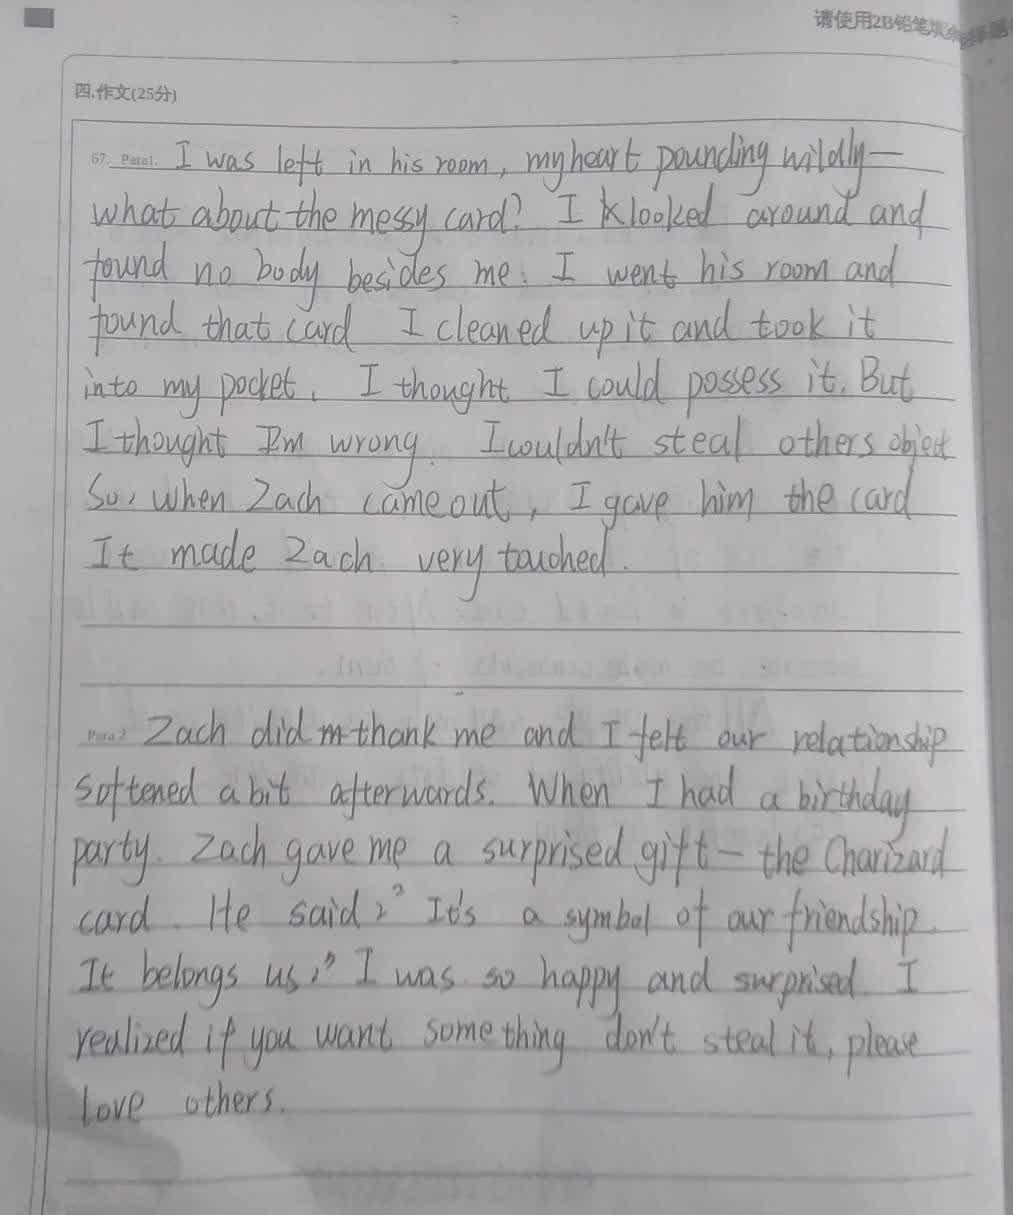 请使用2B铅笔填涂
四.作文(25分)
67. Para1. I was left in his room, my heart pounding wildly—
what about the messy card? I looked around and
found no body besides me. I went his room and
found that card I cleaned up it and took it
into my pocket. I thought I could possess it. But
I thought I'm wrong. I wouldn't steal others object
So, when Zach came out, I gave him the card
It made Zach very touched.
Para2 Zach did thank me and I felt our relationship
softened a bit afterwards. When I had a birthday
party. Zach gave me a surprised gift — the Charizard
card. He said," It's a symbol of our friendship.
It belongs us." I was so happy and surprised. I
realized if you want something don't steal it, please
love others.